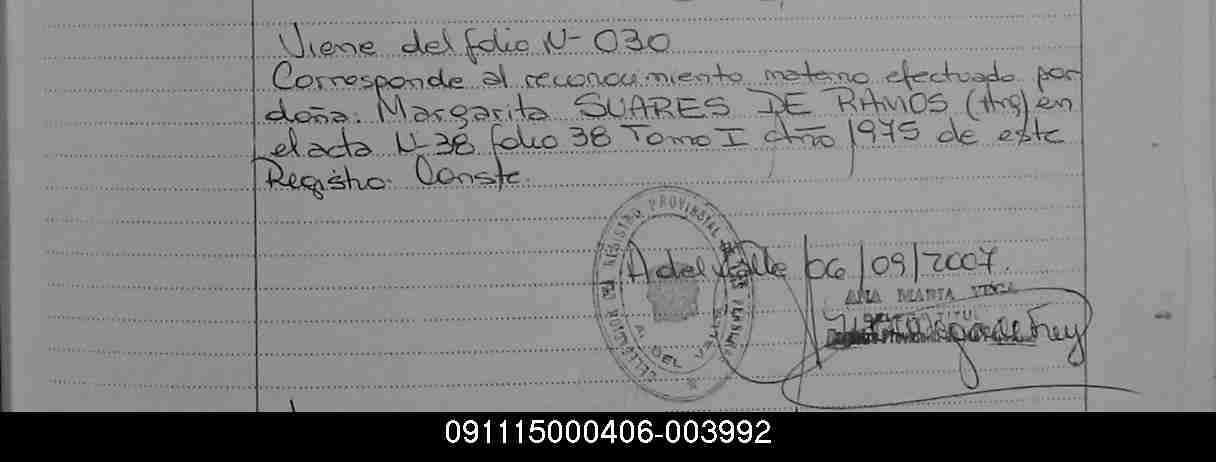 Viene del folio N- 030
Corresponde al reconocimiento materno efectuado por
doña. Margarita SUARES DE RAMOS (Arg) en
el acta N-38 folio 38 Tomo I Año 1975 de este
Registro. Conste.
REGISTRO PROVINCIAL
A del Valle 06/09/2007.
ANA MARIA VEGA
091115000406-003992